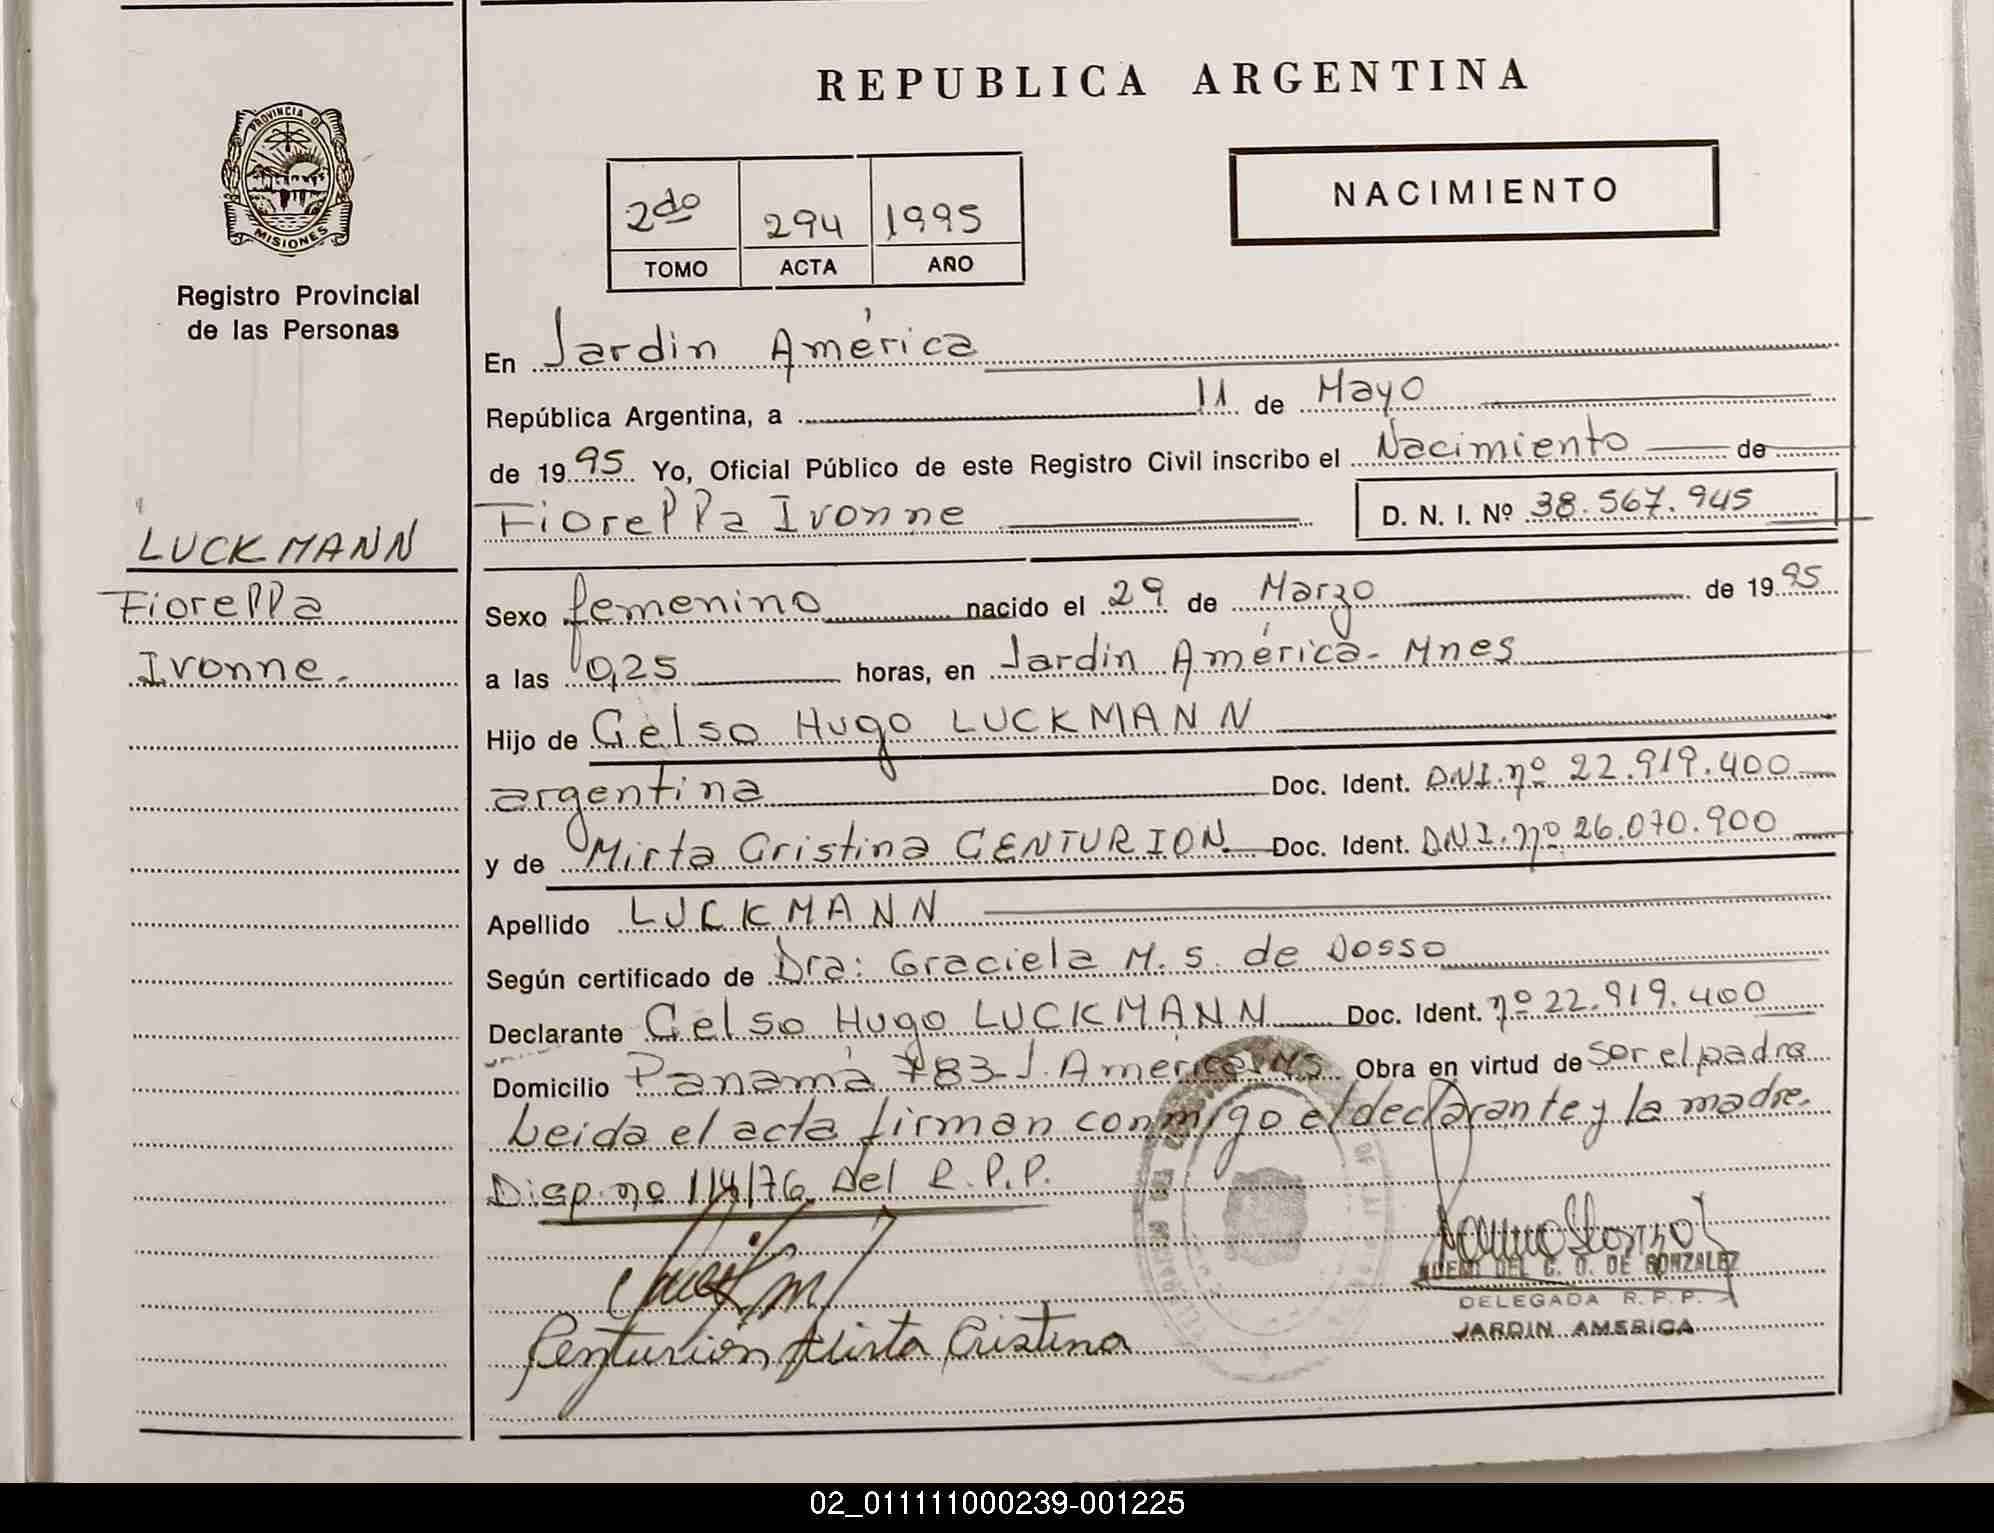 REPUBLICA ARGENTINA
PROVINCIA DE
MISIONES
Registro Provincial
de las Personas
2do 294 1995
TOMO ACTA AÑO
NACIMIENTO
En Jardín América
República Argentina, a 11 de Mayo
de 1995 Yo, Oficial Público de este Registro Civil inscribo el Nacimiento de
Fiorella Ivonne D. N. I. Nº 38.567.945
LUCKMANN
Fiorella
Ivonne.
Sexo femenino nacido el 29 de Marzo de 1995
a las 0,25 horas, en Jardín América - Mnes
Hijo de Celso Hugo LUCKMANN
argentina Doc. Ident. D.N.I. nº 22.919.400
y de Mirta Cristina CENTURION Doc. Ident. D.N.I. nº 26.070.900
Apellido LUCKMANN
Según certificado de Dra: Graciela M. S. de Dosso
Declarante Celso Hugo LUCKMANN Doc. Ident. nº 22.919.400
Domicilio Panamá 783 - J. América Ms Obra en virtud de ser el padre
Leida el acta firman conmigo el declarante y la madre.
Disp. nº 114/76 Del R.P.P.
Centurión Mirta Cristina
DEL C. O. DE GONZALEZ
DELEGADA R. P. P.
JARDIN AMERICA
02_011111000239-001225